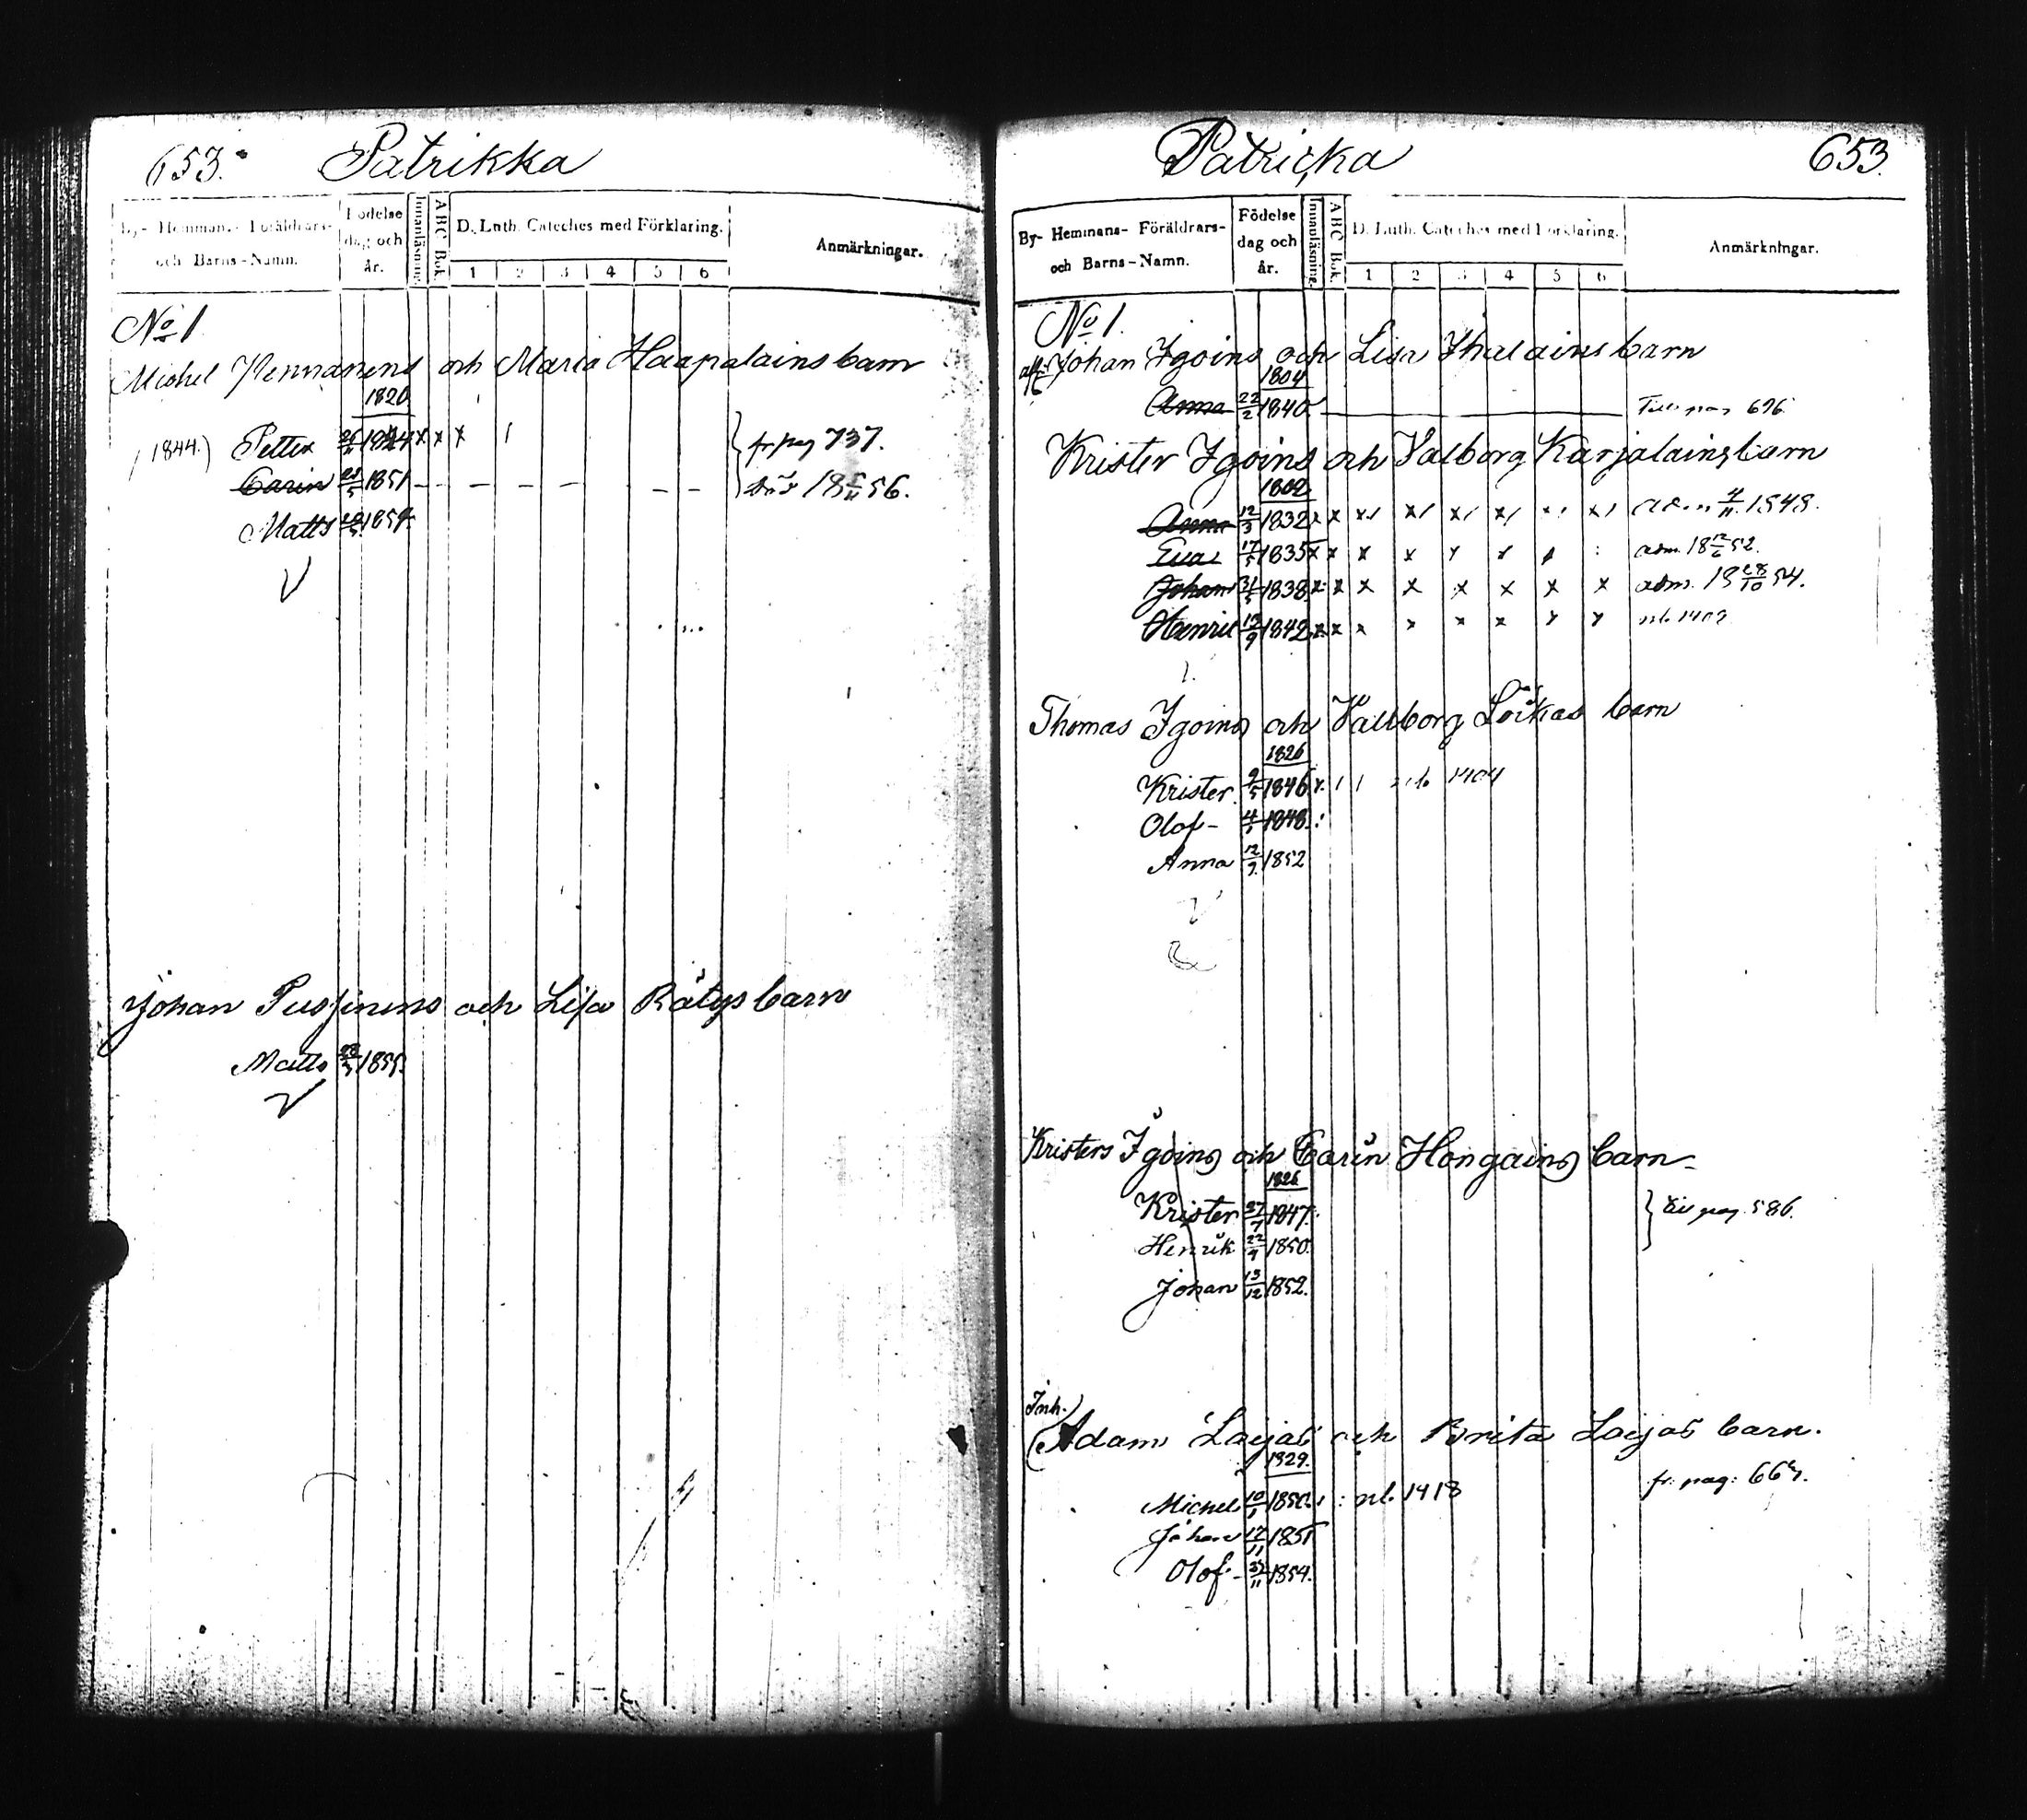 653. Patrikka
By- Hemmans- Föräldrars- och Barns-Namn. Födelse dag och år. Innanläsning. ABC Bok. D. Luth. Cateches med Förklaring. 1 2 3 4 5 6 Anmärkningar.
No 1
Michel Pennanens och Maria Haapalains barn
1820
(1844.) Petter 1844 x x x fr pag 737.
Carin 1851 – – – – – – död 18 5/11 56.
Matts 1854.
Johan Pusjinens och Lisa Rätys barn
Matts 1855.
Patricka 653.
By- Hemmans- Föräldrars- och Barns-Namn. Födelse dag och år. Innanläsning. ABC Bok. D. Luth. Cateches med Förklaring. 1 2 3 4 5 6 Anmärkningar.
No 1.
Johan Igoins och Lisa Ihalains barn
1804
Anna 22/2 1840. Till pag 696.
Krister Igoins och Valborg Karjalains barn
1802
Anna 12/3 1832 x x x x x x x x adm 4/11 1848.
Eva 17/5 1835 x x x x x x adm. 18 12/6 52.
Johan 31/5 1838 x x x x x x x x adm. 18 28/10 54.
Henric 13/9 1842 x x x x x x x x
Thomas Igoins och Vallborg Löikas barn
1826
Krister 9/5 1846. x 1404
Olof - 4/1 1848.
Anna 12/7 1852
Kristers Igoins och Carin Hongains barn
1826
Krister 27/7 1847.
Henrik 22/9 1850.
Johan 13/12 1852.
till pag. 586.
Inh.
Adam Laijas och Brita Loijas barn.
1829.
fr. pag:
Michel 10/1 1850. nb. 1418
Johan 12/11 1851
Olof - 1854.